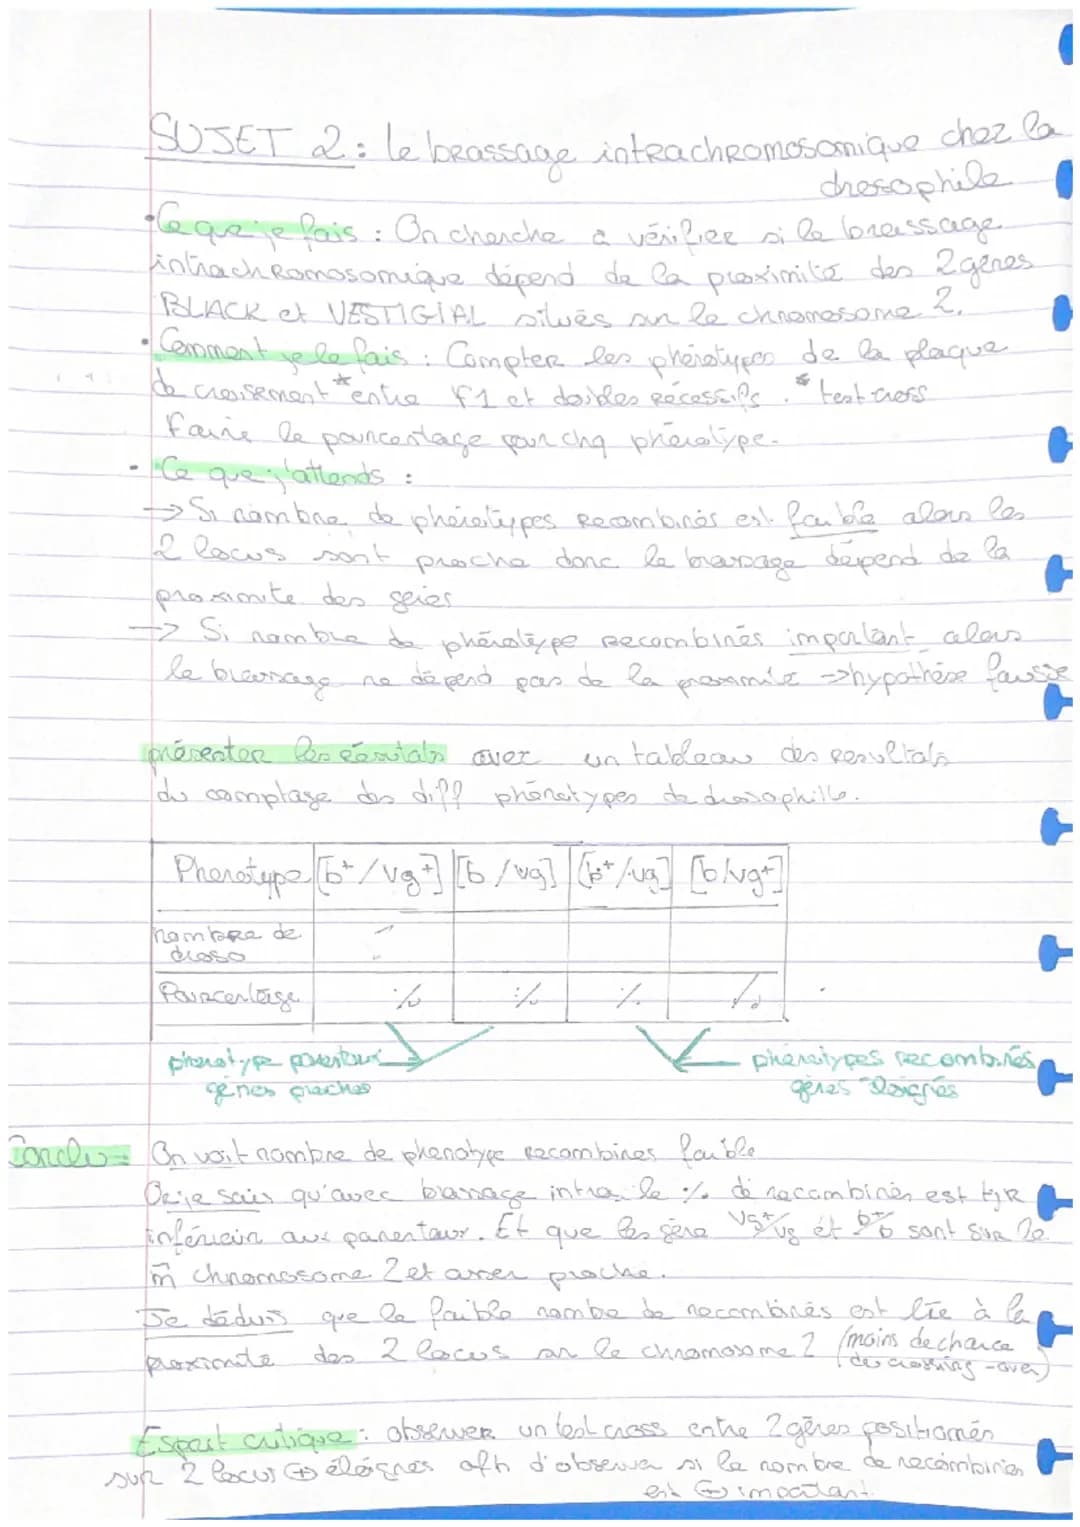 SUJET 2 : le brassage intrachromosomique chez la
drosophile
• Ce que je fais : On cherche à vérifier si le brassage
intrachromosomique dépend de la proximité des 2 gènes
BLACK et VESTIGIAL situés sur le chromosome 2.
• Comment je le fais : Compter les phénotypes de la plaque
de croisement * entre F1 et doubles récessifs. * test cross
Faire le pourcentage pour chq phénotype.
• Ce que j'attends :
→ Si nombre de phénotypes recombinés est faible alors les
2 locus sont proche donc le brassage dépend de la
proximité des gènes
→ Si nombre de phénotype recombinés important alors
le brassage ne dépend pas de la proximité → hypothèse fausse
présenter les résultats avec un tableau des resultats
du comptage des diff phénotypes de drosophile.
Phenotype [b+/vg+] [b/vg] [b+/vg] [b/vg+]
nombre de
droso
Pourcentage % % % %
phenotype parentaux
phénotypes recombinés
gènes proches
gènes éloignés
Conclu = On voit nombre de phenotype recombines faible
Or je sais qu'avec brassage intra, le % de recombinés est tjr
inférieur aux parentaux. Et que les gène vg+/vg et b+/b sont sur le
m̂ chromosome 2 et assez proche.
Je déduis que le faible nombre de recombinés est lié à la
proximité des 2 locus sur le chromosome 2 (moins de chance
de crossing-over)
Esprit critique : observer un test cross entre 2 gènes positionnés
sur 2 locus ⊕ éloignés afin d'observer si le nombre de recombinés
est ⊕ important.